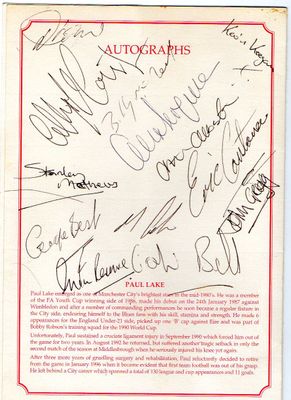 AUTOGRAPHS
Kevin Keegan
Stanley
Matthews
Eric Cantona
George Best
PAUL LAKE
Paul Lake emerged as one of Manchester City's brightest stars in the mid 1980's. He was a member
of the FA Youth Cup winning side of 1986, made his debut on the 24th January 1987 against
Wimbledon and after a number of commanding performances he soon became a regular fixture in
the City side, endearing himself to the Blues fans with his skill, stamina and strength. He made 6
appearances for the England Under-21 side, picked up one 'B' cap against Eire and was part of
Bobby Robson's training squad for the 1990 World Cup.
Unfortunately, Paul sustained a cruciate ligament injury in September 1990 which forced him out of
the game for two years. In August 1992 he returned, but suffered another tragic setback in only the
second match of the season at Middlesbrough when he seriously injured his knee yet again.
After three more years of gruelling surgery and rehabilitation, Paul reluctantly decided to retire
from the game in January 1996 when it became evident that first team football was out of his grasp.
He left behind a City career which spanned a total of 130 league and cup appearances and 11 goals.